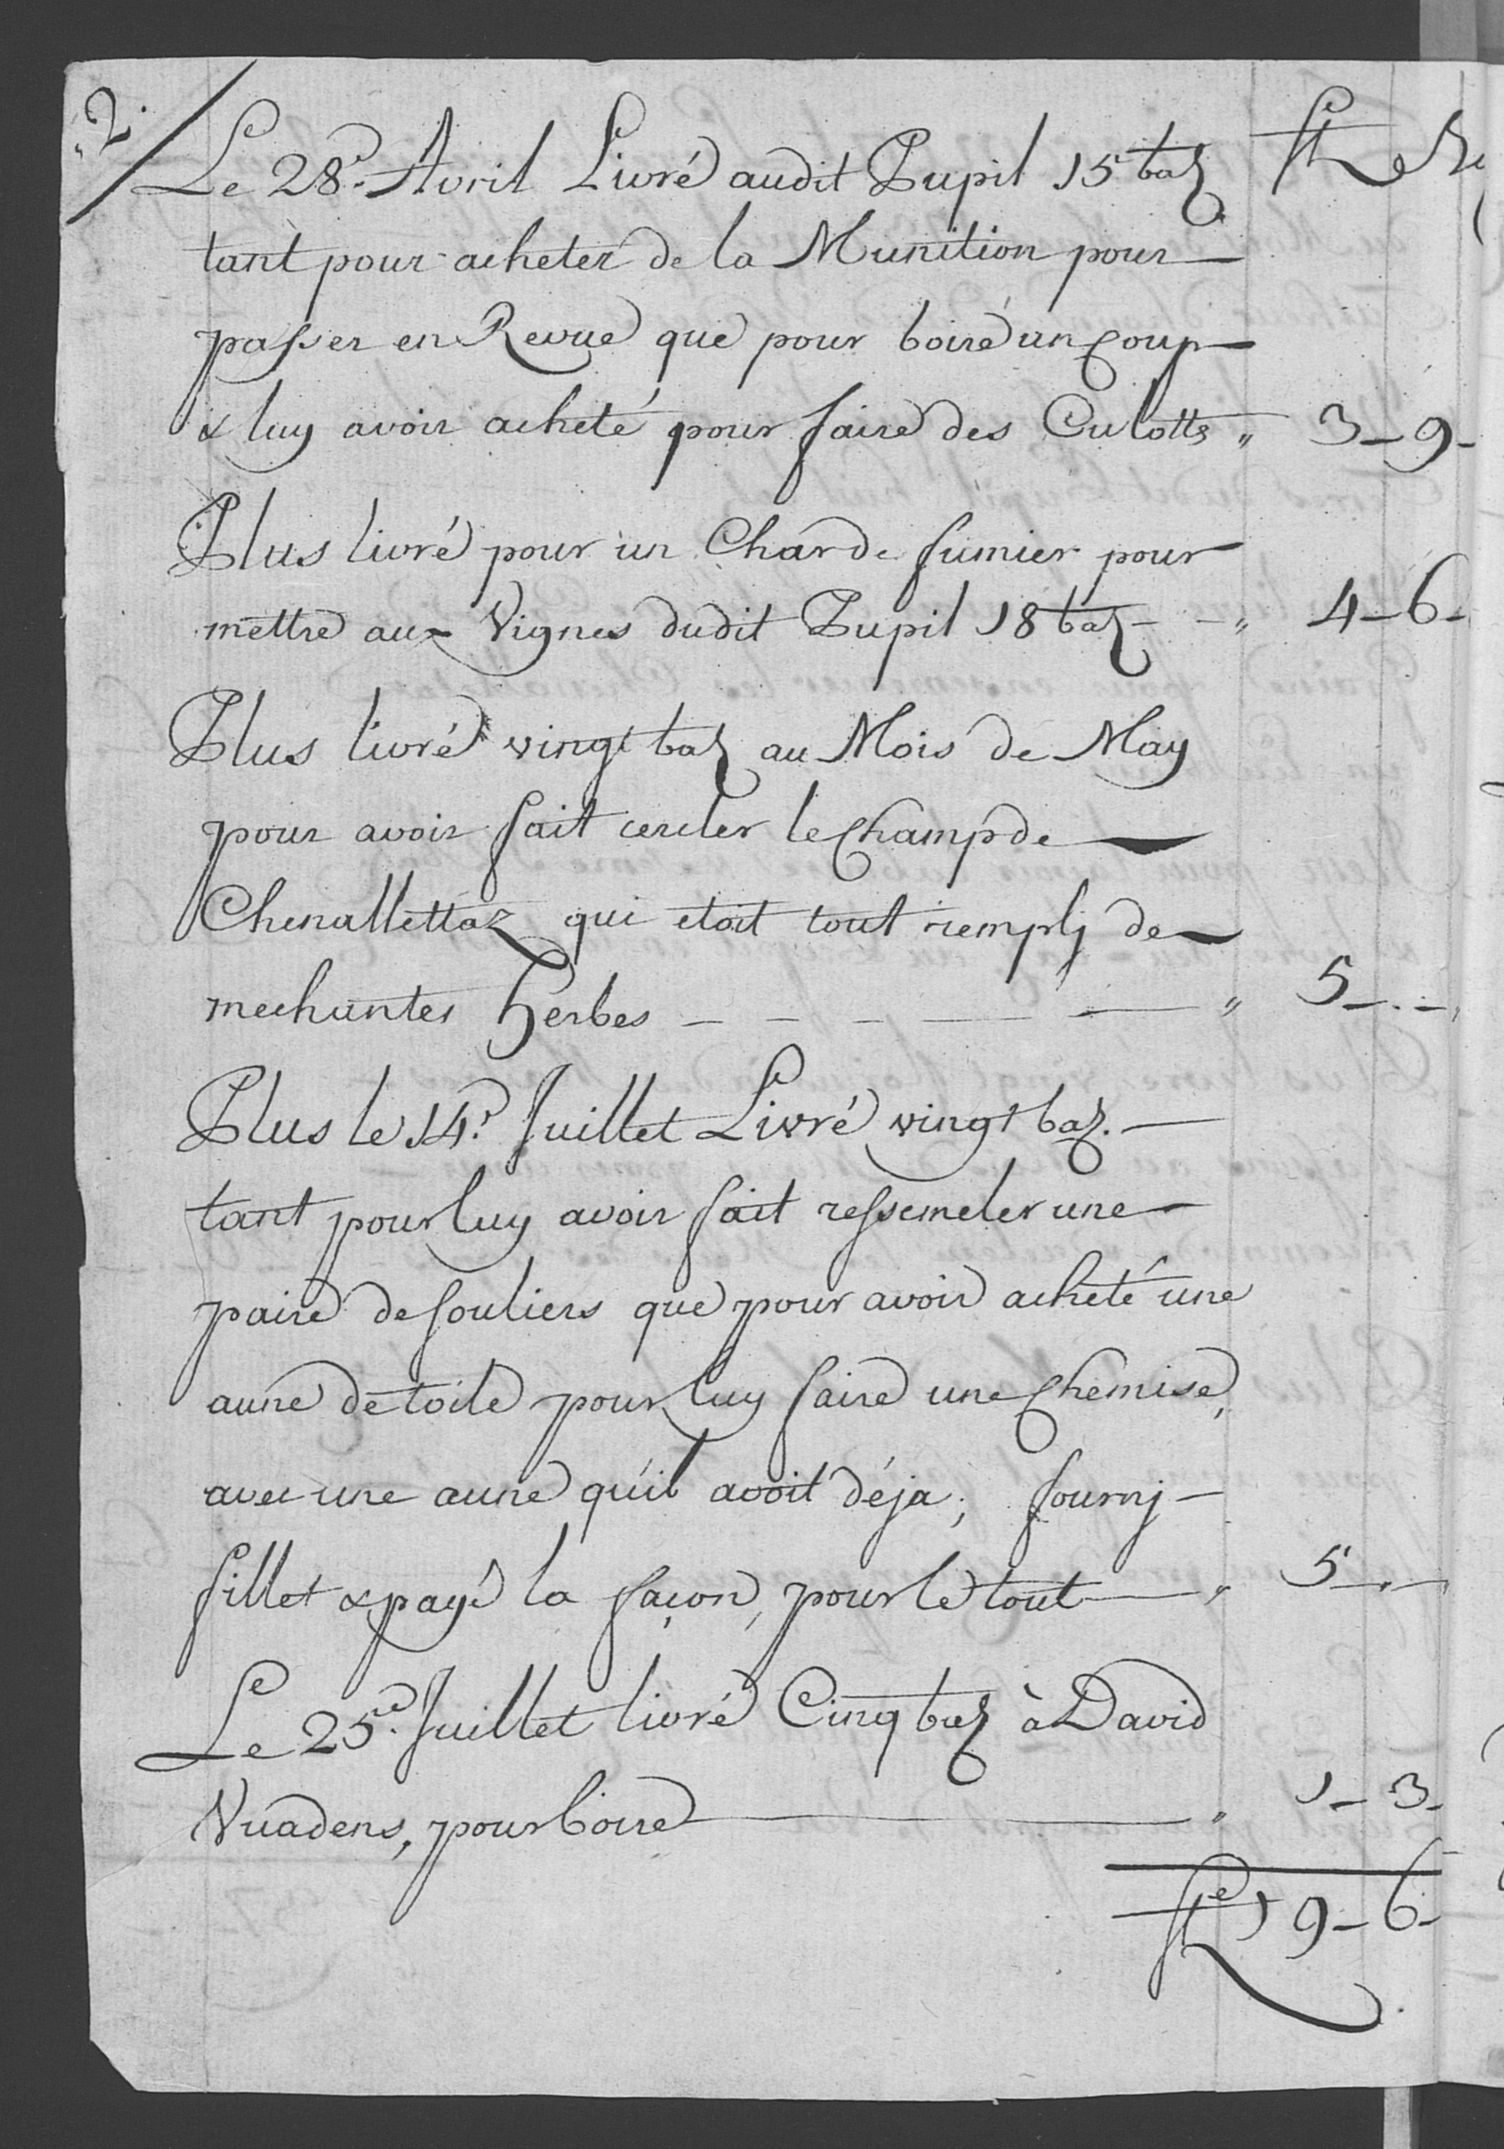 2.
Le 28.e Avril Livré audit Pupil 15 baz
tant pour acheter de la Munition pour
passer en Revue que pour boire un Coup
& luy avoir acheté pour faire des Culotts " 3 - 9 -
Plus livré pour un Char de fumier pour
mettre aux Vignes dudit Pupil 18 baz - - " 4 - 6 -
Plus livré vingt baz au Mois de May
pour avoir fait cercler le Champ de
Chenallettaz qui etoit tout remply de
mechantes herbes - - - - - " 5 - . -
Plus le 14.e Juillet Livré vingt baz. -
tant pour luy avoir fait ressemeler une
paire de souliers que pour avoir acheté une
aune de toile pour luy faire une Chemise,
avec une aune qu'il avoit déja; fourny -
fillet & payé la façon, pour le tout - " 5 - . -
Le 25.e Juillet livré Cinq baz à David
Vuadens, pour boire - " 1 - 3 -
19 - 6 -